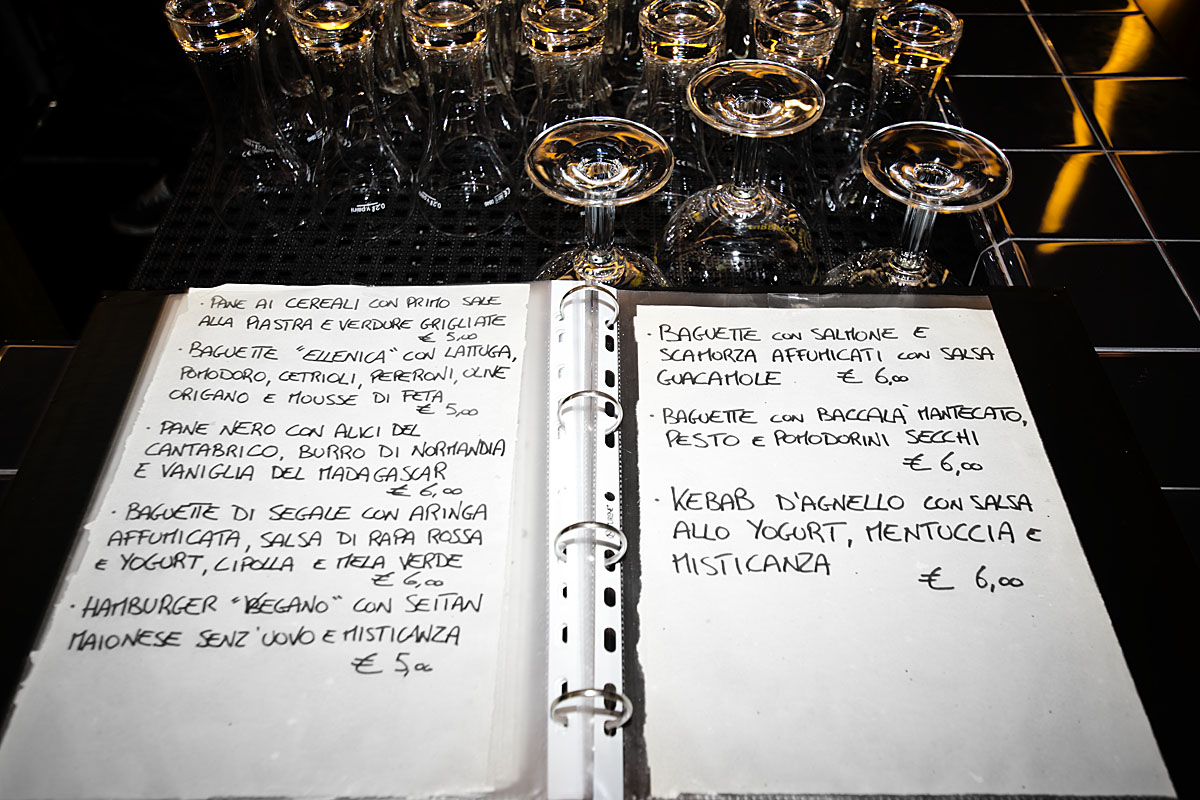 0,2l
· PANE AI CEREALI CON PRIMO SALE
ALLA PIASTRA E VERDURE GRIGLIATE
€ 5,00
· BAGUETTE "ELLENICA" CON LATTUGA,
POMODORO, CETRIOLI, PEPERONI, OLIVE
ORIGANO E MOUSSE DI FETA
€ 5,00
· PANE NERO CON ALICI DEL
CANTABRICO, BURRO DI NORMANDIA
E VANIGLIA DEL MADAGASCAR
€ 6,00
· BAGUETTE DI SEGALE CON ARINGA
AFFUMICATA, SALSA DI RAPA ROSSA
E YOGURT, CIPOLLA E MELA VERDE
€ 6,00
· HAMBURGER "VEGANO" CON SEITAN
MAIONESE SENZ'UOVO E MISTICANZA
€ 5,00
· BAGUETTE CON SALMONE E
SCAMORZA AFFUMICATI CON SALSA
GUACAMOLE € 6,00
· BAGUETTE CON BACCALA' MANTECATO,
PESTO E POMODORINI SECCHI
€ 6,00
· KEBAB D'AGNELLO CON SALSA
ALLO YOGURT, MENTUCCIA E
MISTICANZA
€ 6,00